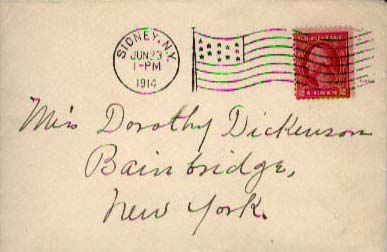 SIDNEY, N.Y.
JUN 23
1-PM
1914
2 CENTS 2
Miss Dorothy Dickenson
Bainbridge,
New York.